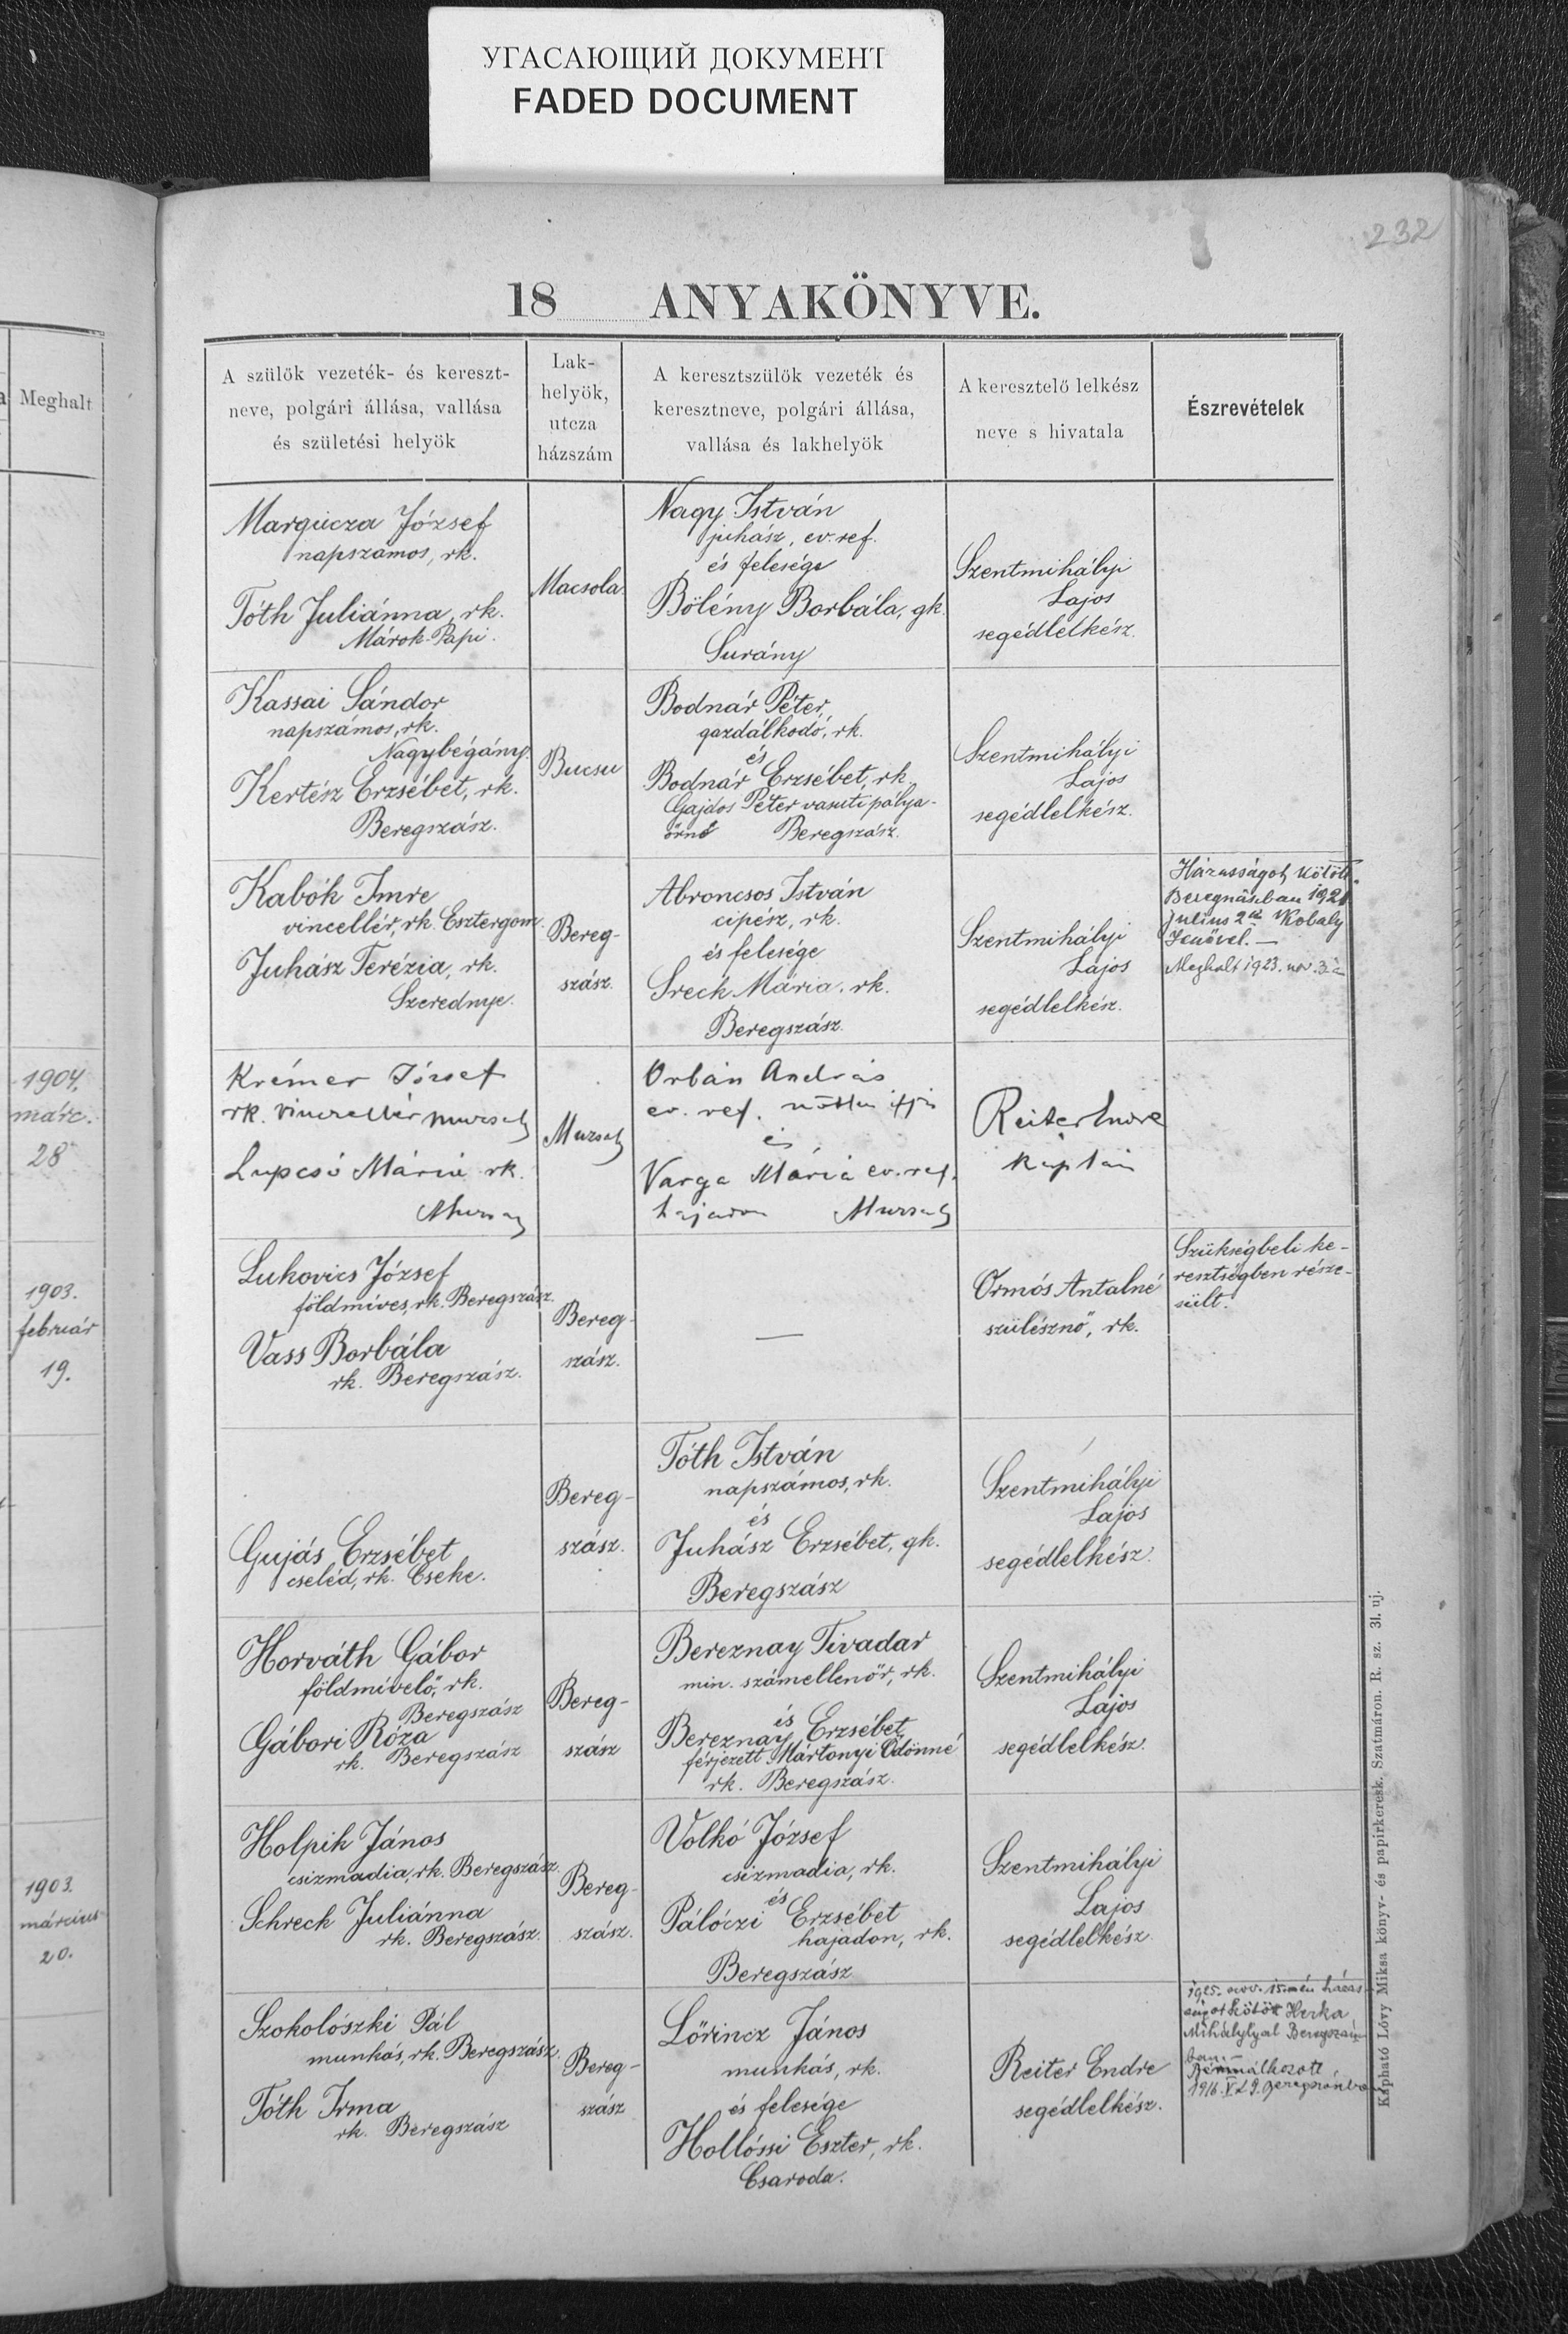 УГАСАЮЩИЙ ДОКУМЕНТ
FADED DOCUMENT
232
18 ANYAKÖNYVE.
Meghalt
A szülök vezeték- és kereszt-
neve, polgári állása, vallása
és születési helyök
Lak-
helyök,
utcza
házszám
A keresztszülök vezeték és
keresztneve, polgári állása,
vallása és lakhelyök
A keresztelő lelkész
neve s hivatala
Észrevételek
Margucza József
napszámos, rk.
Tóth Juliánna, rk.
Márok-Papi.
Macsola
Nagy István
juhász, ev. ref.
és felesége
Bölény Borbála, gk.
Surány
Szentmihályi
Lajos
segédlelkész.
Kassai Sándor
napszámos, rk.
Nagybégány.
Kertész Erzsébet, rk.
Beregszász.
Bucsu
Bodnár Péter,
gazdálkodó, rk.
és
Bodnár Erzsébet, rk.
Gajdos Péter vasuti pálya-
őrné Beregszász.
Szentmihályi
Lajos
segédlelkész.
Kabók Imre
vincellér, rk. Esztergom.
Juhász Terézia, rk.
Szerednye.
Bereg-
szász.
Abroncsos István
cipész, rk.
és felesége
Sreck Mária, rk.
Beregszász.
Szentmihályi
Lajos
segédlelkész.
Házasságot kötött
Beregszászban 1921
Julius 2án Kobaly
Jenővel. —
Meghalt 1923. nov. 3án
1904.
márc.
28
Krémer József
rk. vinczellér Muzsaly
Lupcsó Mária rk.
Muzsaly
Muzsaly
Orbán András
ev. ref. nőtlen ifju
és
Varga Mária ev. ref.
hajadon Muzsaly
Reiter Endre
káplán
1903.
február
19.
Lukovics József
földmíves, rk. Beregszász.
Vass Borbála
rk. Beregszász.
Bereg-
szász.
—
Ormós Antalné
szülésznő, rk.
Szükségbeli ke-
resztségben része-
sült.
Gujás Erzsébet
cseléd, rk. Cseke.
Bereg-
szász.
Tóth István
napszámos, rk.
és
Juhász Erzsébet, gk.
Beregszász
Szentmihályi
Lajos
segédlelkész.
Horváth Gábor
földmívelő, rk.
Beregszász
Gábori Róza
rk. Beregszász
Bereg-
szász
Bereznay Tivadar
min. számellenőr, rk.
és
Bereznay Erzsébet
férjezett Mártonyi Ödönné
rk. Beregszász.
Szentmihályi
Lajos
segédlelkész.
1903.
március
20.
Holpik János
csizmadia, rk. Beregszász.
Schreck Juliánna
rk. Beregszász.
Bereg-
szász.
Volkó József
csizmadia, rk.
és
Pálóczi Erzsébet
hajadon, rk.
Beregszász
Szentmihályi
Lajos
segédlelkész.
Szokolószki Pál
munkás, rk. Beregszász.
Tóth Irma
rk. Beregszász
Bereg-
szász
Lőrincz János
munkás, rk.
és felesége
Hollóssi Eszter, rk.
Csaroda.
Reiter Endre
segédlelkész.
1925. nov. 15-én házas-
ságot kötött Hirka
Mihálylyal Beregszász-
ban.—
Bérmálkozott
1916. V. 29. Beregszászban
Kapható Lővy Miksa könyv- és papirkeresk. Szatmáron. R. sz. 31. uj.